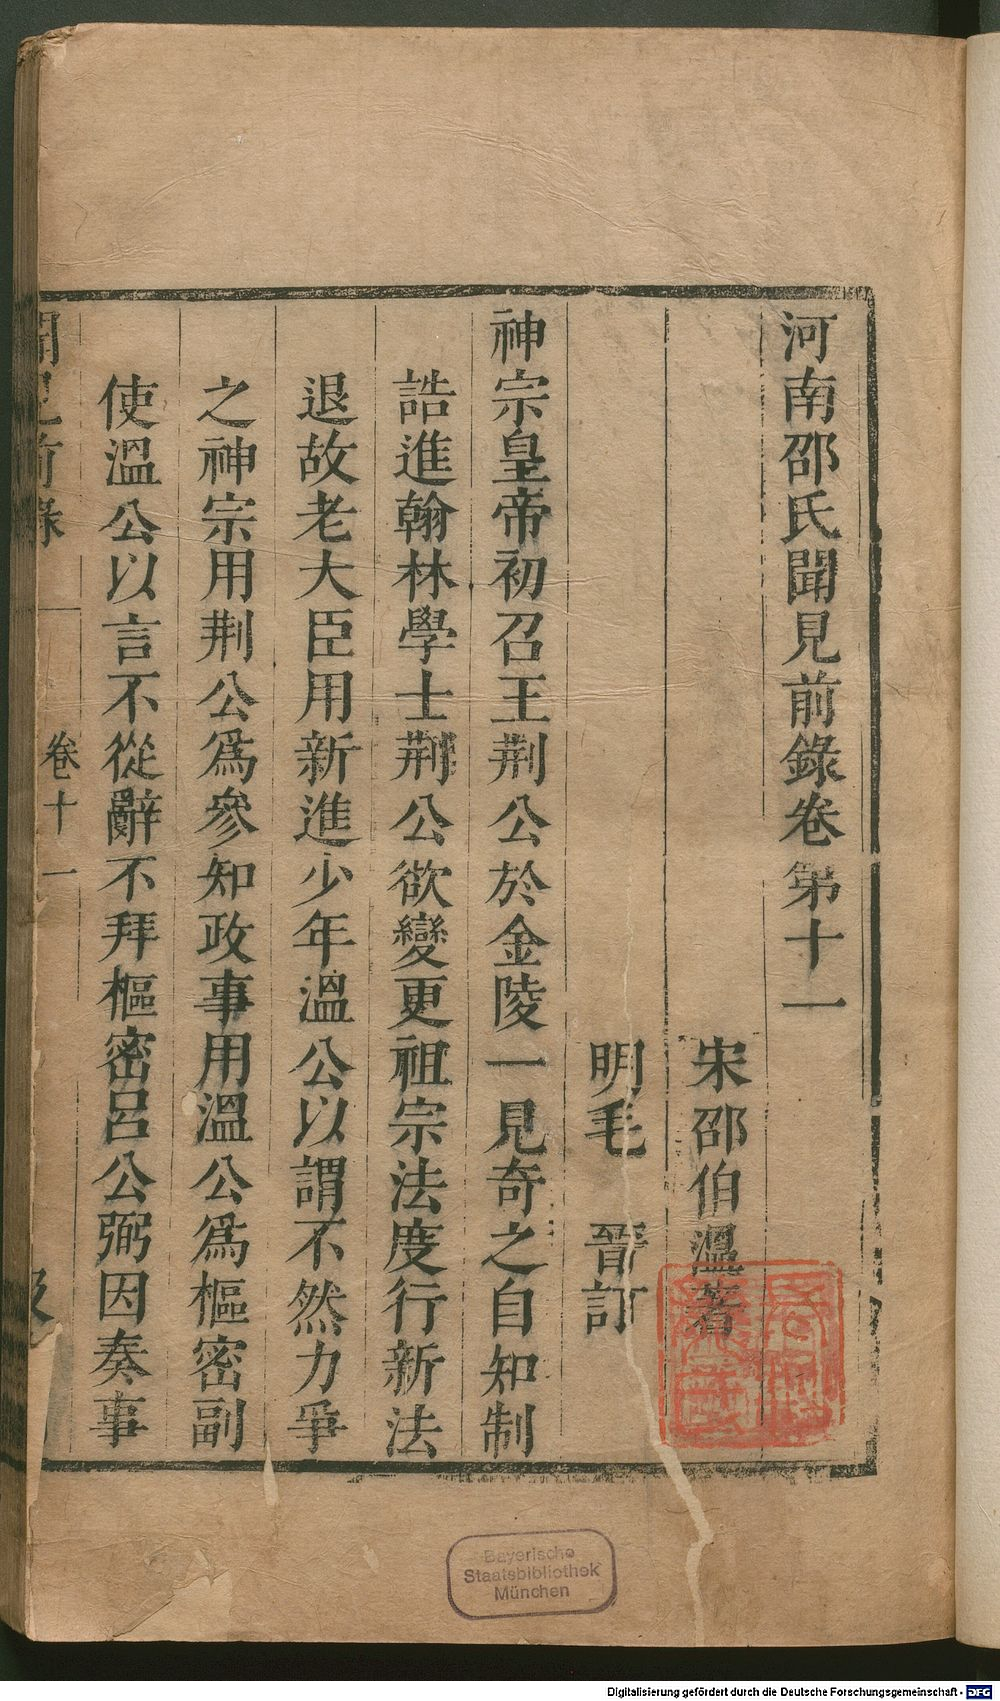 河南邵氏聞見前錄卷第十一
宋邵伯溫著
明毛　晉訂
神宗皇帝初召王荆公於金陵一見奇之自知制
誥進翰林學士荆公欲變更祖宗法度行新法
退故老大臣用新進少年溫公以謂不然力爭
之神宗用荆公爲參知政事用溫公爲樞密副
使溫公以言不從辭不拜樞密呂公弼因奏事
聞見前錄
卷十一
Bayerische
Staatsbibliothek
München
Digitalisierung gefördert durch die Deutsche Forschungsgemeinschaft - DFG